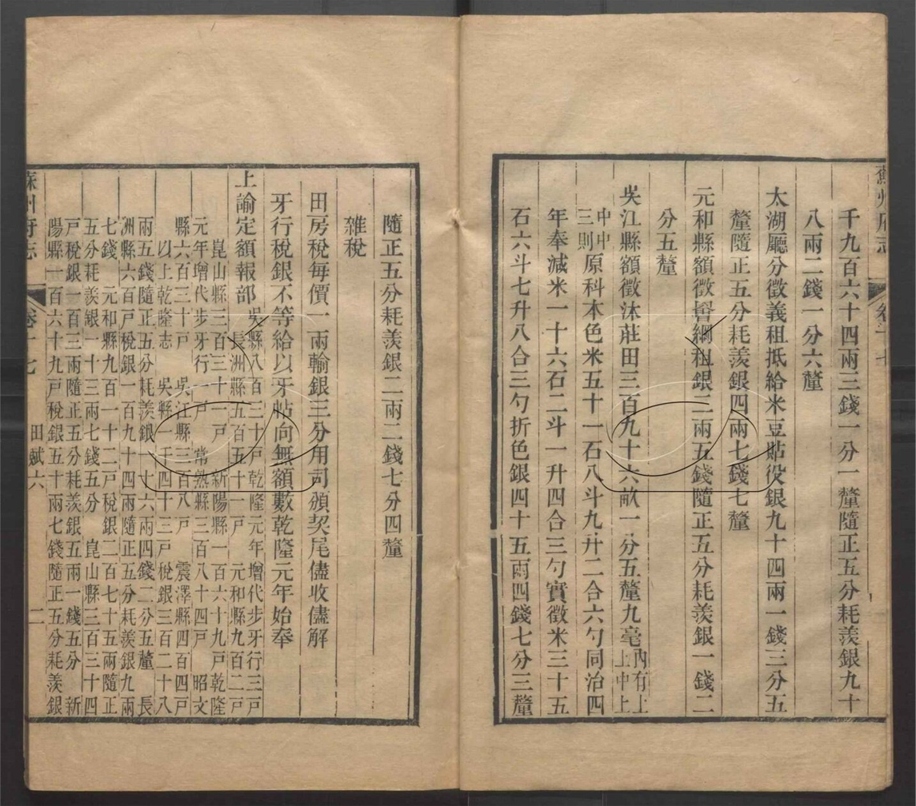 蘇州府志
卷十七
千九百六十四兩三錢一分一釐隨正五分耗羨銀九十
八兩二錢一分六釐
太湖廳分徵義租抵給米豆貼役銀九十四兩一錢三分五
釐隨正五分耗羨銀四兩七錢七釐
元和縣額徵 綱租銀三兩五錢隨正五分耗羨銀一錢二
分五釐
吳江縣額徵沐莊田三百九十六畝一分五釐九毫內有上
上中上
中中
三則原科本色米五十一石八斗九升二合六勺同治四
年奉減米一十六石二斗一升四合三勺實徵米三十五
石六斗七升八合三勺折色銀四十五兩四錢七分三釐
隨正五分耗羨銀二兩二錢七分四釐
雜稅
田房稅每價一兩輸銀三分用司頒契尾儘收儘解
牙行稅銀不等給以牙帖向無額數乾隆元年始奉
上諭定額報部吳縣八百三十戶乾隆元年增代步牙行三戶
長洲縣五百五十一戶 元和縣九百二戶
崑山縣三百三十一戶 新陽縣一百六十九戶乾隆
元年增代步牙行一戶 常熟縣三百八十四戶 昭文
縣六百三十戶 吳江縣三百八戶 震澤縣四百四戶
以上乾隆志 吳縣一千四十三戶稅銀三百二十八
兩五錢隨正五分耗羨銀一十六兩四錢二分五釐 長
洲縣六百戶稅銀一百九十四兩隨正五分耗羨銀九兩
七錢 元和縣九百一十二戶稅銀二百七十五兩隨正
五分耗羨銀一十三兩七錢五分 崑山縣三百三十四
戶稅銀一百三兩隨正五分耗羨銀五兩一錢五分 新
陽縣一百六十九戶稅銀五十兩七錢隨正五分耗羨銀
蘇州府志
卷十七
田賦六
二